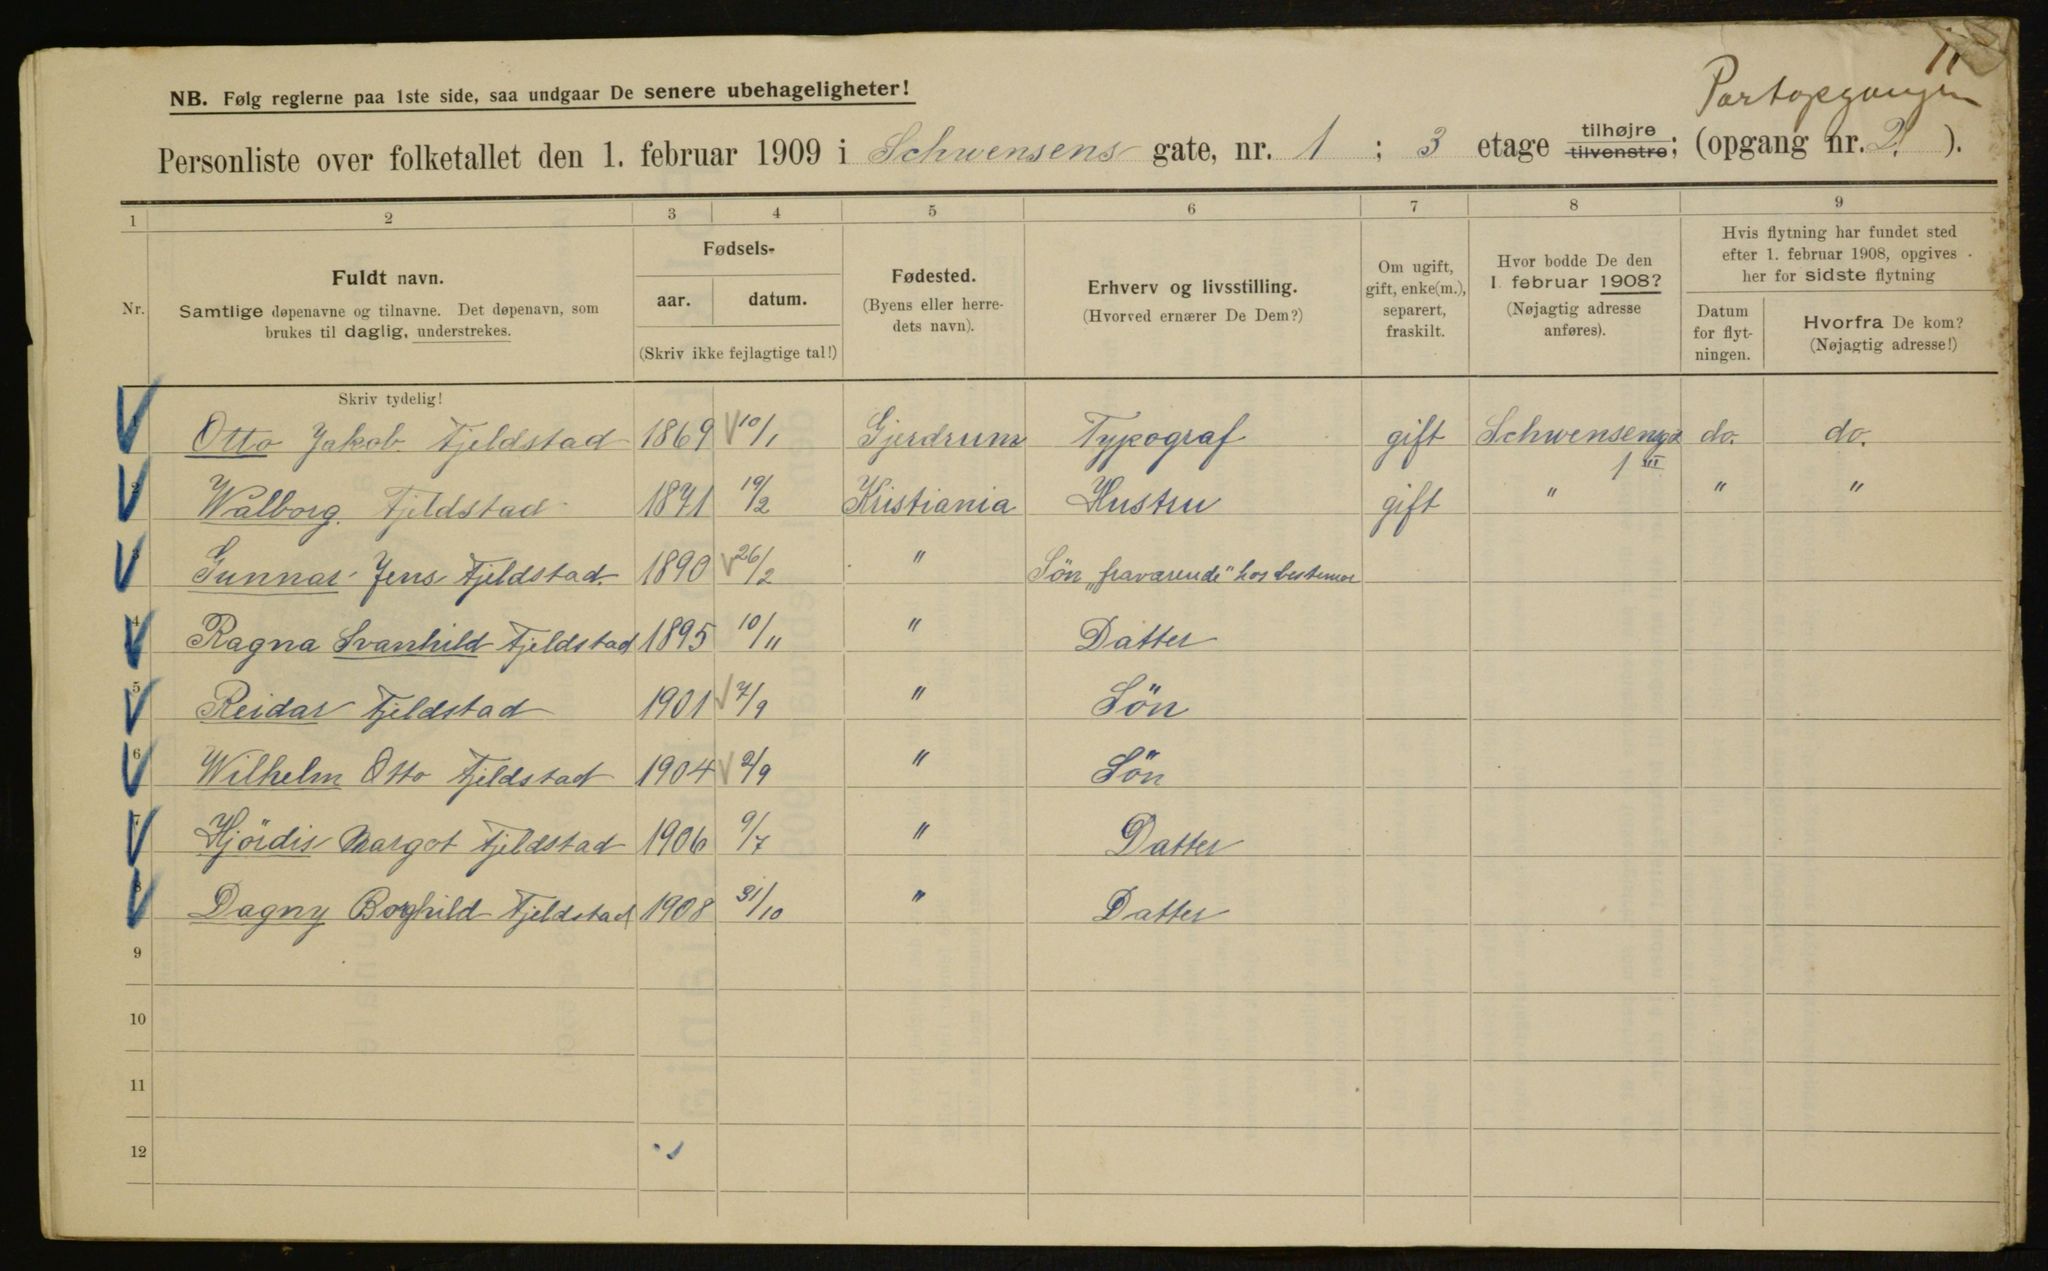 11
Portopgangen
NB. Følg reglerne paa 1ste side, saa undgaar De senere ubehageligheter!
Personliste over folketallet den 1. februar 1909 i Schwensens gate, nr. 1 ; 3 etage tilhøjre tilvenstre; (opgang nr. 2. ).
1 2 3 4 5 6 7 8 9
Nr.
Fuldt navn.
Samtlige døpenavne og tilnavne. Det døpenavn, som
brukes til daglig, understrekes.
Fødsels-
aar. datum.
(Skriv ikke fejlagtige tal!)
Fødested.
(Byens eller herre-
dets navn).
Erhverv og livsstilling.
(Hvorved ernærer De Dem?)
Om ugift,
gift, enke(m.),
separert,
fraskilt.
Hvor bodde De den
1. februar 1908?
(Nøjagtig adresse
anføres).
Hvis flytning har fundet sted
efter 1. februar 1908, opgives
her for sidste flytning
Datum
for flyt-
ningen.
Hvorfra De kom?
(Nøjagtig adresse!)
Skriv tydelig!
1 Otto Jakob Fjeldstad 1869 10/1 Gjerdrum Typograf gift Schwensensgd 1 III do. do.
2 Walborg Fjeldstad 1871 19/2 Kristiania Hustru gift " " "
3 Gunnar Jens Fjeldstad. 1890 26/2 " Sön „fraværende" hos bestemor
4 Ragna Svanhild Fjeldstad 1895 10/11 " Datter
5 Reidar Fjeldstad 1901 7/9 " Sön
6 Wilhelm Otto Fjeldstad 1904 2/9 " Sön
7 Hjördis Margot Fjeldstad 1906 9/7 " Datter
8 Dagny Borghild Fjeldstad 1908 31/10 " Datter
9
10
11
12